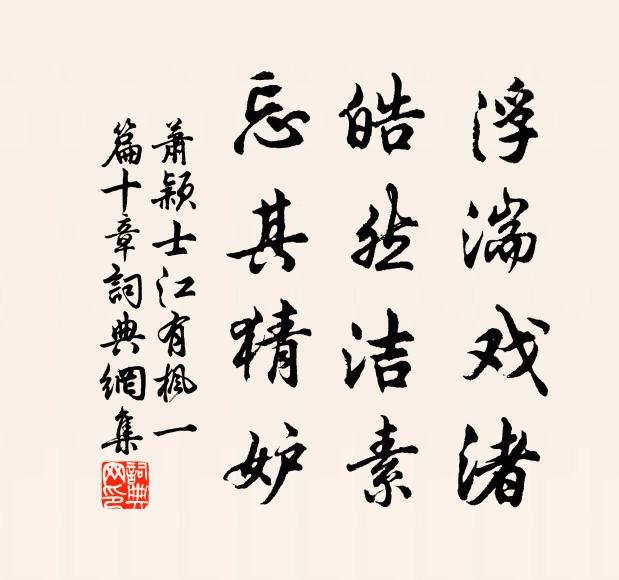 浮湍戏渚
皓然洁素
忘其猜妒
萧颖士江有枫一
篇十章詞典網集
詞典网印